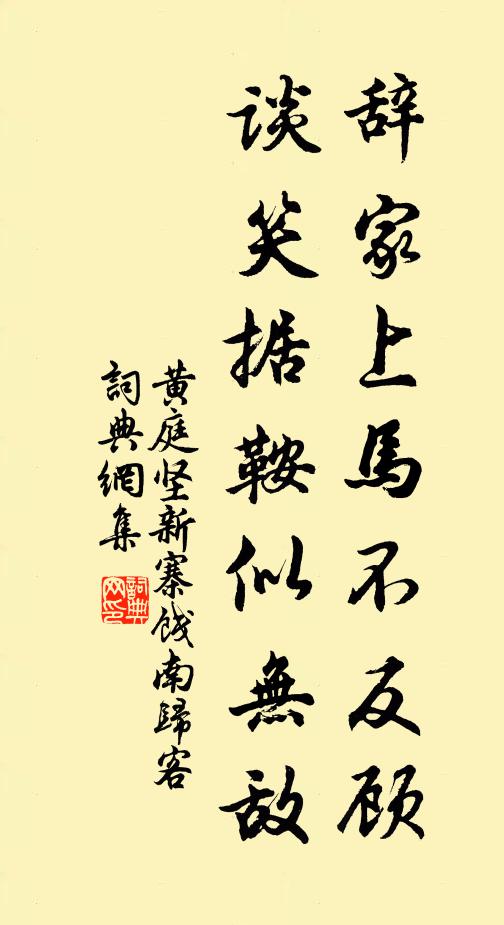 辞家上馬不反顾
谈笑据鞍似無敌
黄庭坚新寨饯南歸客
詞典網集
詞典网印